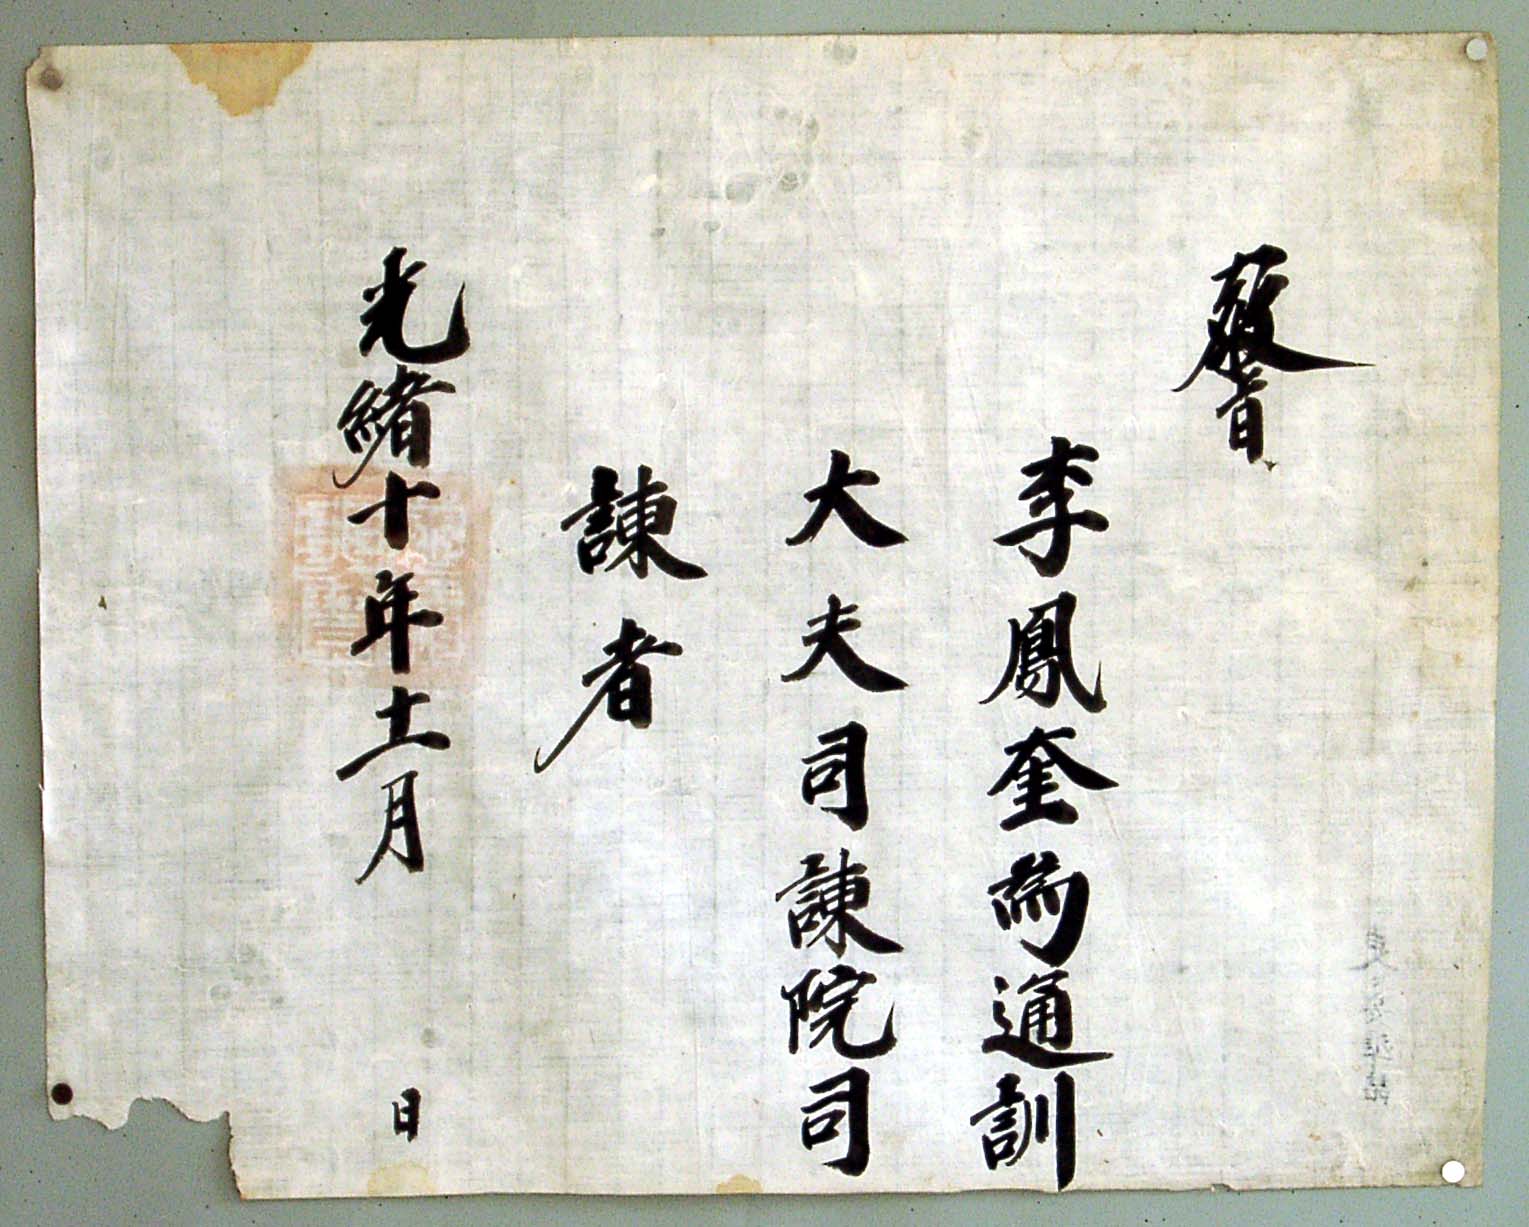 敎旨
李鳳奎爲通訓
大夫司諫院司
諫者
光緖十年十二月
日